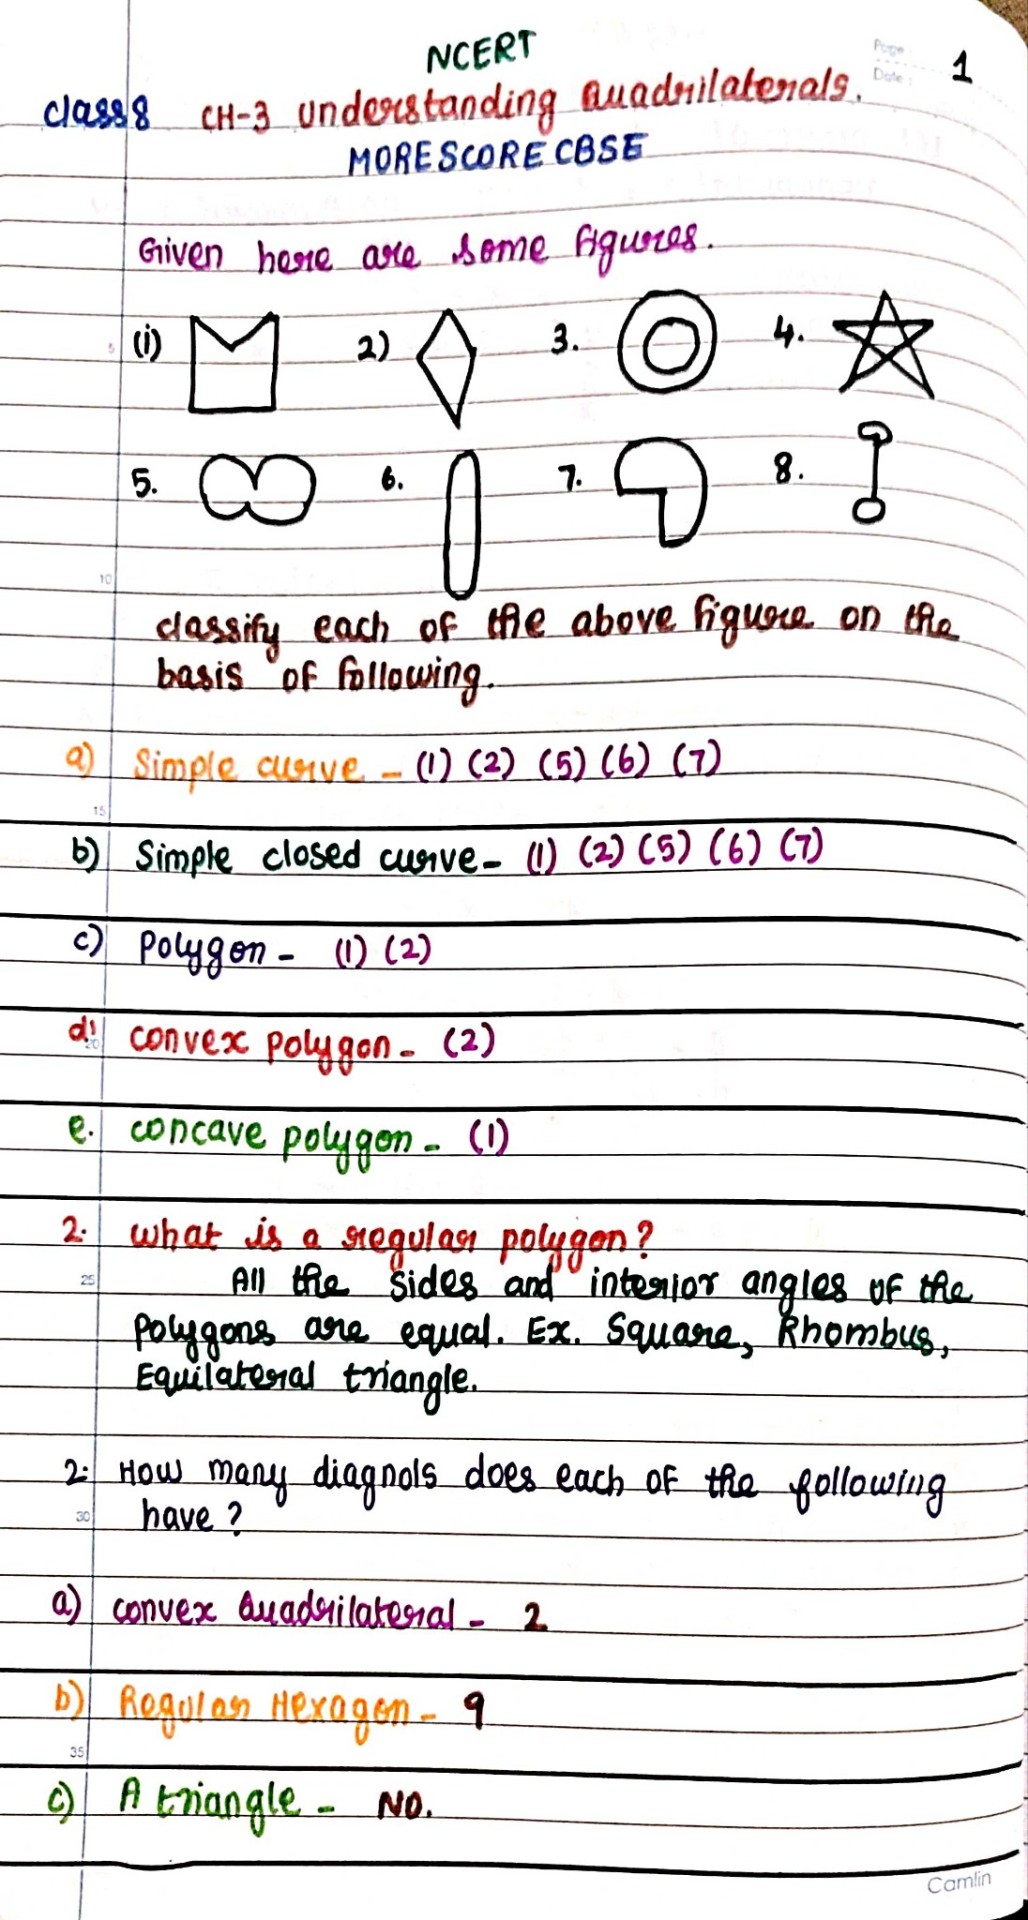 NCERT
Page:
Date:
1
class 8 CH-3 Understanding Quadrilaterals.
MORE SCORE CBSE
Given here are some figures.
(i) 2) 3. 4.
5
5. 6. 7. 8.
10
classify each of the above figure on the
basis of following.
a) Simple curve - (1) (2) (5) (6) (7)
15
b) Simple closed curve - (1) (2) (5) (6) (7)
c) Polygon - (1) (2)
d) convex polygon - (2)
20
e. concave polygon - (1)
2. what is a regular polygon?
25
All the sides and interior angles of the
Polygons are equal. Ex. Square, Rhombus,
Equilateral triangle.
2. How many diagnols does each of the following
30
have ?
a) convex Quadrilateral - 2
b) Regular Hexagon - 9
35
c) A triangle - NO.
Camlin